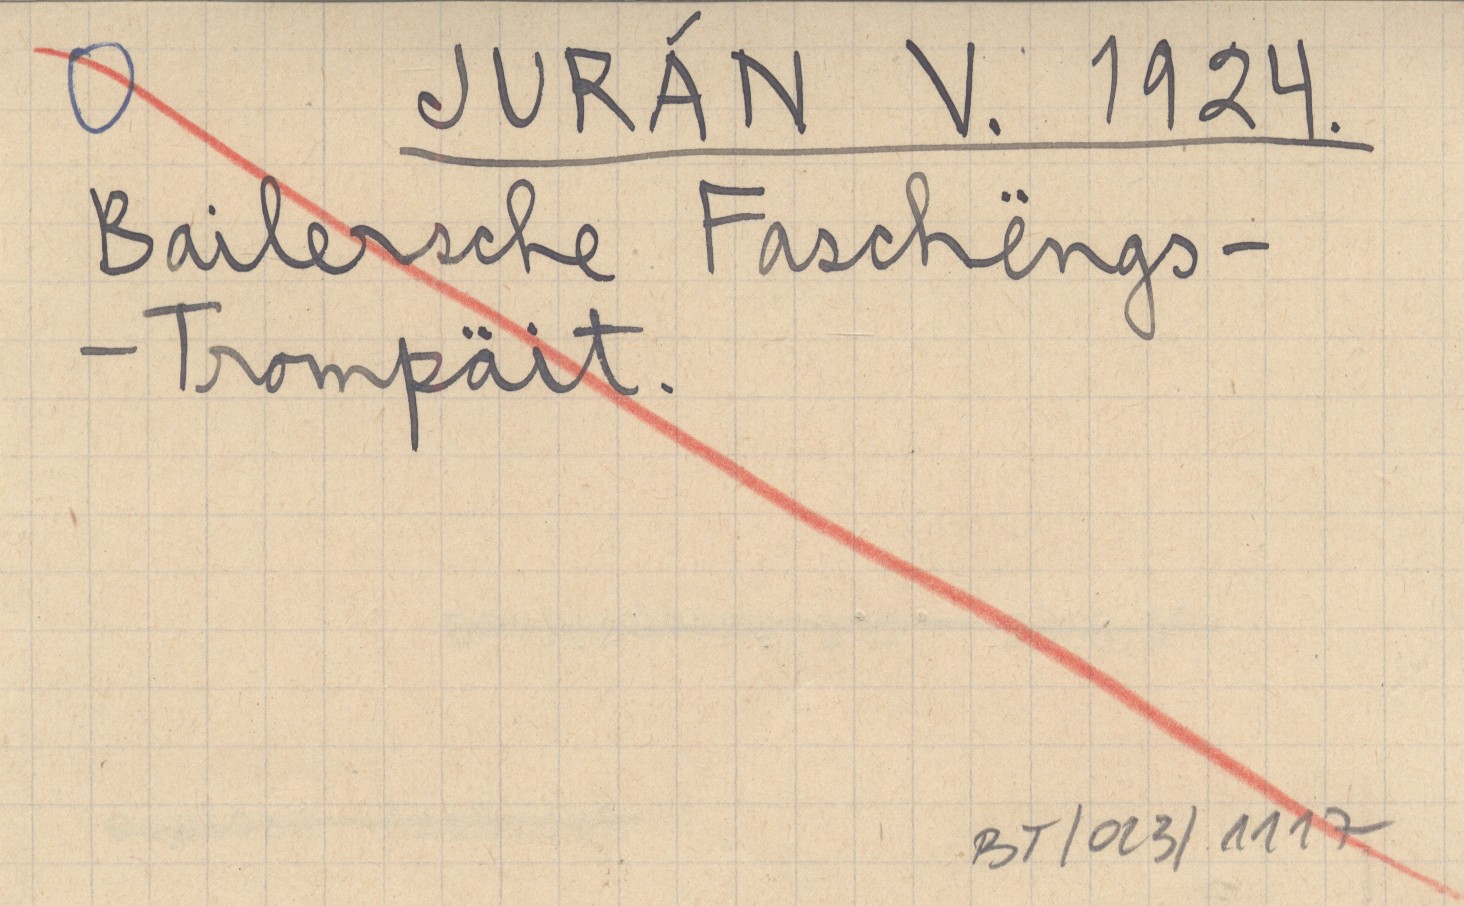 JURÁN V. 1924.
Bailersche Faschëngs-
-Trompäit.
BT/023/1117